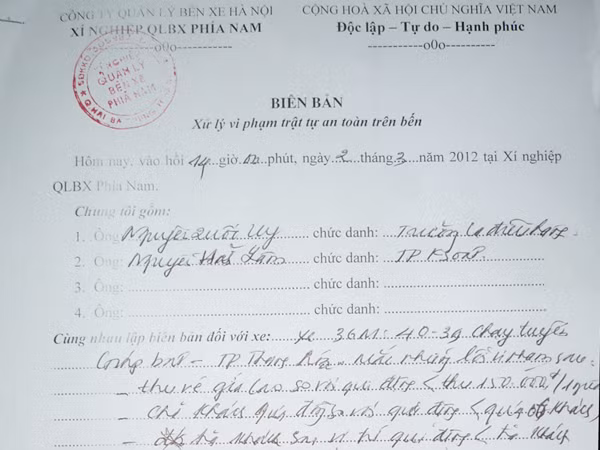 CÔNG TY QUẢN LÝ BẾN XE HÀ NỘI
XÍ NGHIỆP QLBX PHÍA NAM
---------o0o---------
CỘNG HOÀ XÃ HỘI CHỦ NGHĨA VIỆT NAM
Độc lập – Tự do – Hạnh phúc
---------o0o---------
XÍ NGHIỆP
QUẢN LÝ
BẾN XE
PHÍA NAM
BIÊN BẢN
Xử lý vi phạm trật tự an toàn trên bến
Hôm nay, vào hồi 14 giờ 00 phút, ngày 2 tháng 3 năm 2012 tại Xí nghiệp
QLBX Phía Nam.
Chúng tôi gồm:
1. Ông: Nguyễn Quốc chức danh: Trưởng ca
2. Ông: Nguyễn chức danh: TP
3. Ông: chức danh:
4. Ông: chức danh:
Cùng nhau lập biên bản đối với xe: Xe 36M: 40-39 chạy tuyến
– TP Thanh Hóa mắc những lỗi vi phạm sau
– thu vé giá cao so với quy định < thu 150.000đ/1
– chở khách quá so với quy định < quá khách
– trả khách sai vị trí quy định < trả khách